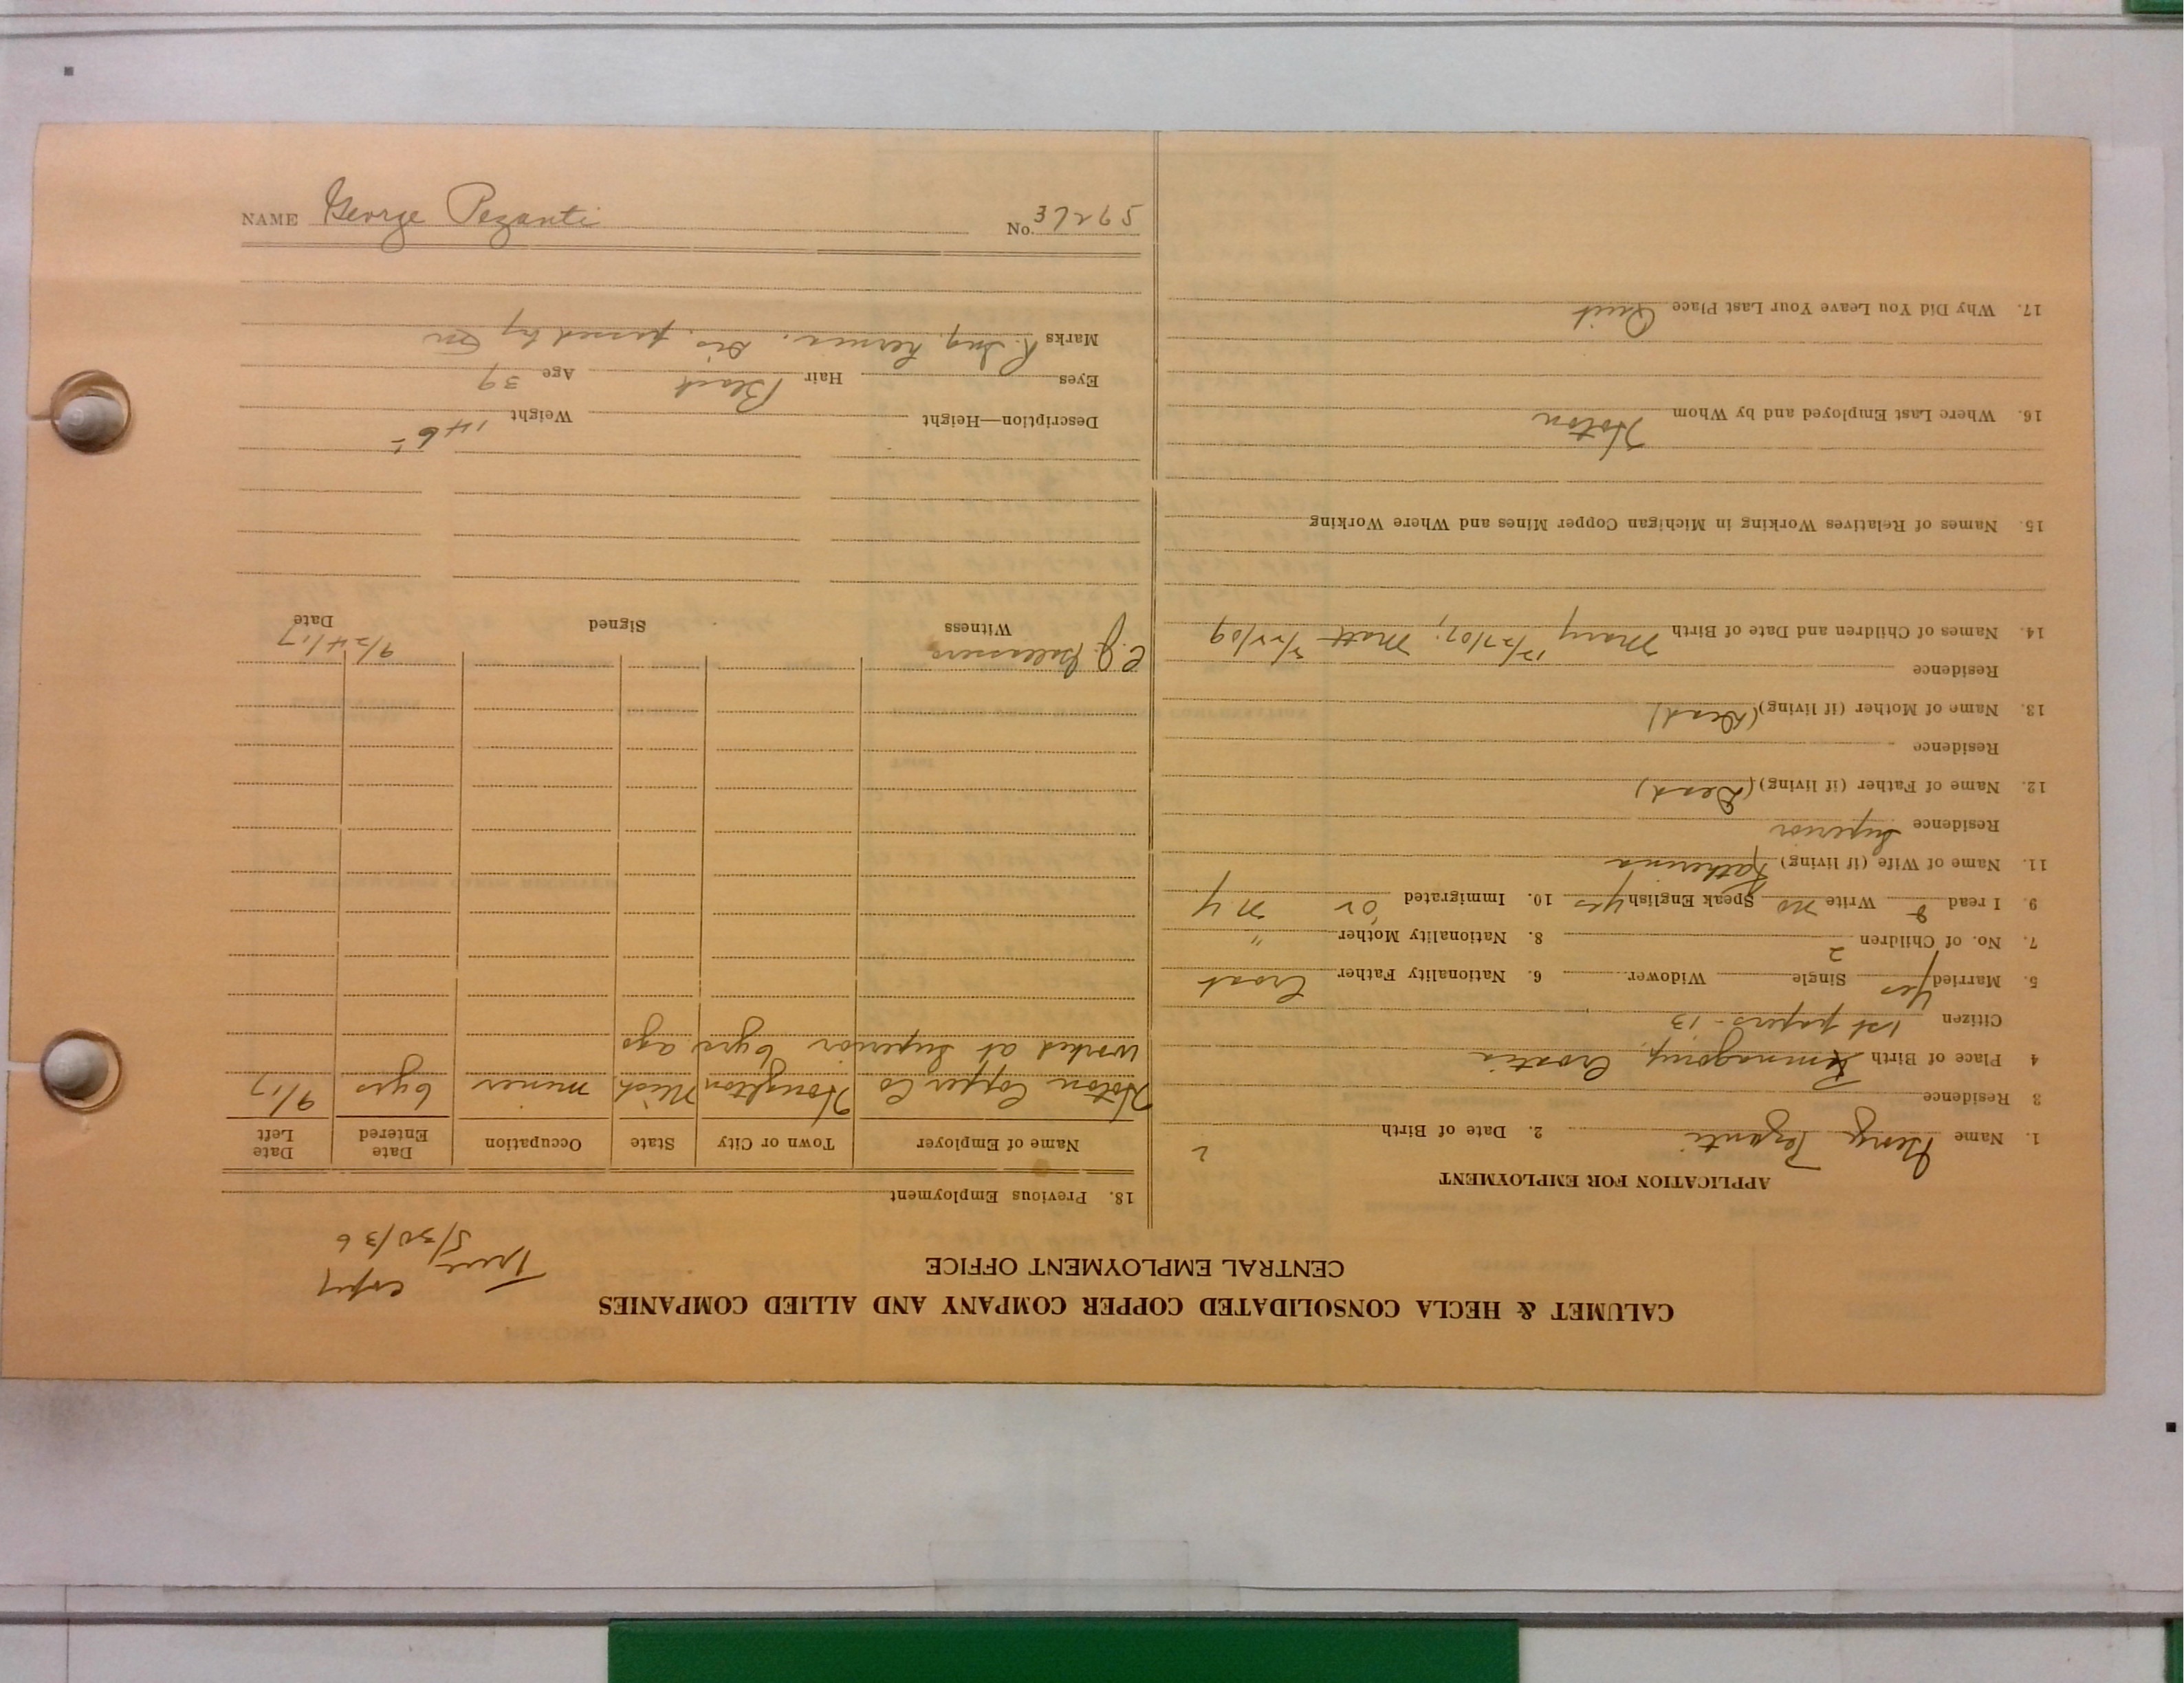 CALUMET & HECLA CONSOLIDATED COPPER COMPANY AND ALLIED COMPANIES
CENTRAL EMPLOYMENT OFFICE
True copy
5/30/36
APPLICATION FOR EMPLOYMENT
1. Name George Pezanti 2. Date of Birth ?
3 Residence
4 Place of Birth Croatia
Citizen 1st papers - 13
5. Married Yes Single Widower 6. Nationality Father Croat
7. No. of Children 2 8. Nationality Mother "
9. I read & Write no Speak English yes 10. Immigrated 02 NY
11. Name of Wife (if living) Katherina
Residence Superior
12. Name of Father (if living) (Dead)
Residence
13. Name of Mother (if living) (Dead)
Residence
14. Names of Children and Date of Birth Mary 12/27/07; Matt 2/22/09
15. Names of Relatives Working in Michigan Copper Mines and Where Working
16. Where Last Employed and by Whom Hoton
17. Why Did You Leave Your Last Place Quit
18. Previous Employment
Name of Employer Town or City State Occupation Date Entered Date Left
Hoton Copper Co Houghton Mich. miner 6yrs 9/17
worked at Superior 6yrs ago
C.J. 9/24/17
Witness Signed Date
Description—Height Weight 146
Eyes Hair Black Age 39
Marks R. Ing. hernia. Dis passed by
NAME George Pezanti No. 37265